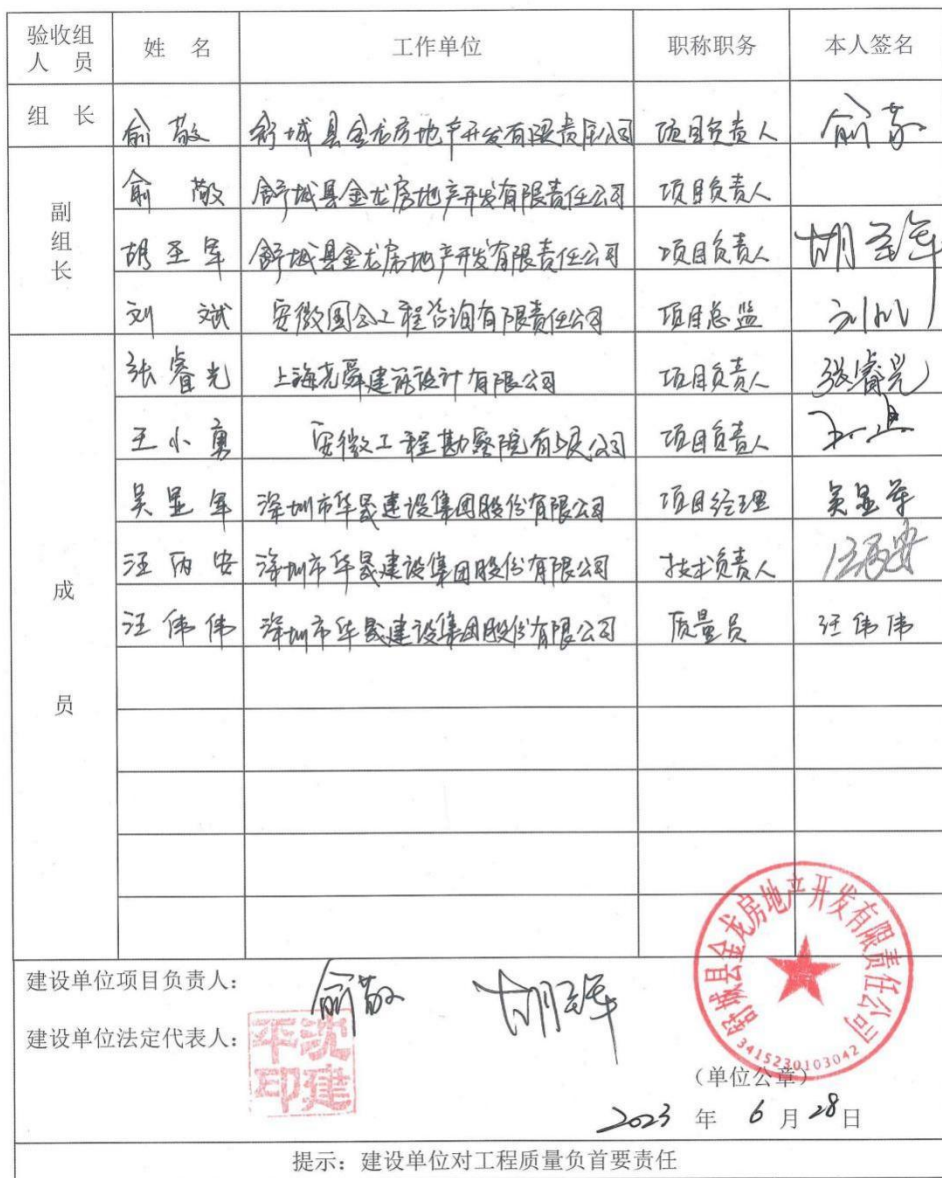 验收组人 员 姓 名 工作单位 职称职务 本人签名
组 长 俞敬 舒城县金龙房地产开发有限责任公司 项目负责人 俞敬
副组长 俞敬 舒城县金龙房地产开发有限责任公司 项目负责人
胡圣军 舒城县金龙房地产开发有限责任公司 项目负责人 胡圣军
刘斌 安徽国合工程咨询有限责任公司 项目总监 刘斌
成员 张睿光 上海尧舜建筑设计有限公司 项目负责人 张睿光
王小勇 安徽工程勘察院有限公司 项目负责人
吴显军 深圳市华晟建设集团股份有限公司 项目经理 吴显军
汪丙安 深圳市华晟建设集团股份有限公司 技术负责人 汪丙安
汪伟伟 深圳市华晟建设集团股份有限公司 质量员 汪伟伟
建设单位项目负责人： 俞敬 胡圣军
建设单位法定代表人： 沈建平印
舒城县金龙房地产开发有限责任公司
3415230103042
（单位公章）
2023 年 6 月 28 日
提示：建设单位对工程质量负首要责任